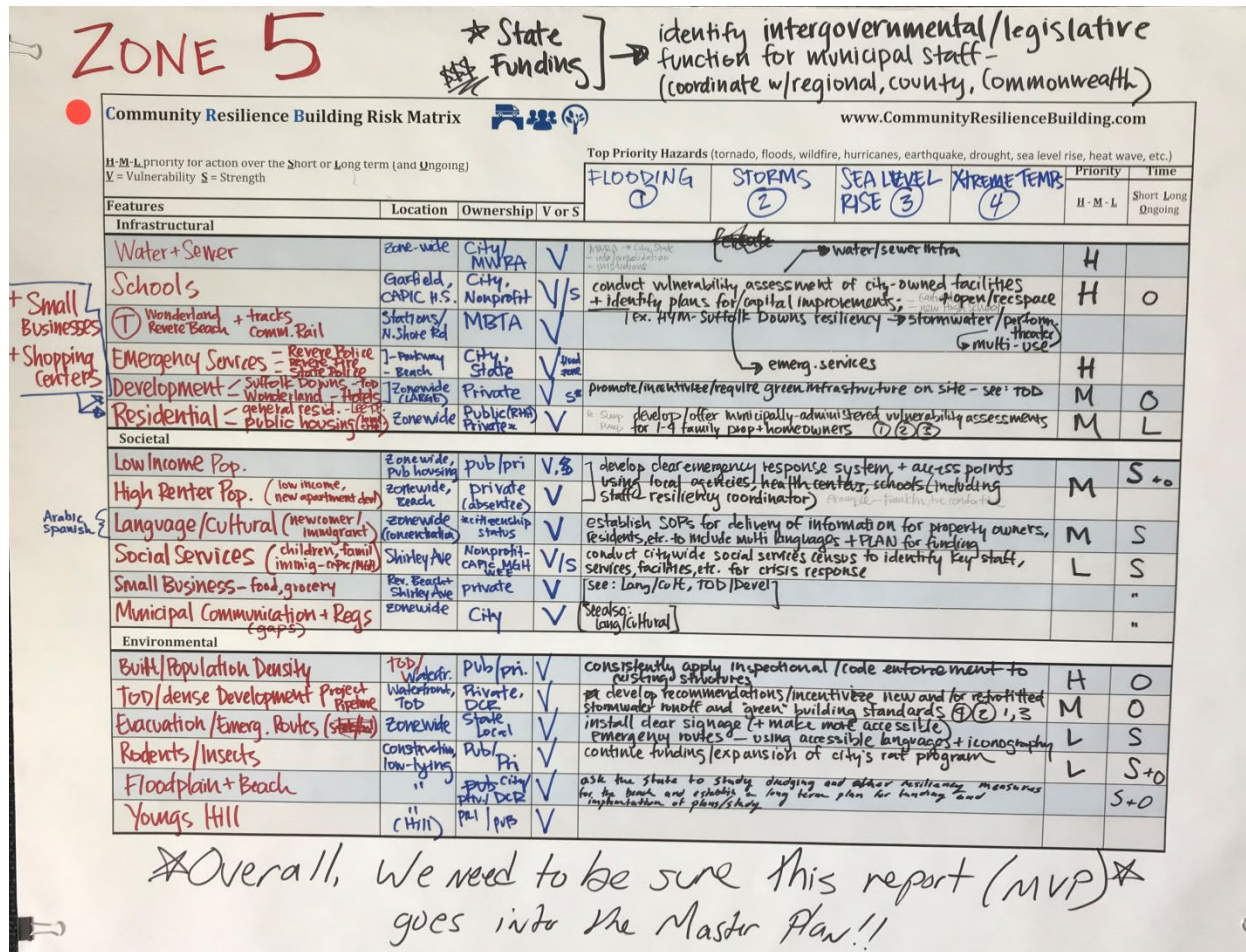 ZONE 5
* State
$$$ Funding
identify intergovernmental/legislative
function for municipal staff -
(coordinate w/regional, county, Commonwealth)
Community Resilience Building Risk Matrix
www.CommunityResilienceBuilding.com
H-M-L priority for action over the Short or Long term (and Ongoing)
V = Vulnerability S = Strength
Top Priority Hazards (tornado, floods, wildfire, hurricanes, earthquake, drought, sea level rise, heat wave, etc.)
FLOODING 1
STORMS 2
SEA LEVEL RISE 3
XTREME TEMPS 4
Priority
Time
H - M - L
Short Long
Ongoing
Features Location Ownership V or S
Infrastructural
Water + Sewer zone-wide City/ MWRA V water/sewer infra H
Schools Garfield, CAPIC H.S. City, Nonprofit V/S conduct vulnerability assessment of city-owned facilities H O
+ identify plans for capital improvements; + open/rec space
T Wonderland Revere Beach + tracks Comm. Rail Stations/ N. Shore Rd MBTA V [ex. HYM-Suffolk Downs resiliency → stormwater/perform. theater
multi-use
Emergency Services = Revere Police Revere Fire State Police ]-Parkway - Beach City, State V flood zone emerg. services H
Development - Suffolk Downs - TOD Wonderland - Hotels ] Zonewide (LARGE) Private V S* promote/incentivize/require green infrastructure on site - see: TOD M O
Residential - general resid. public housing Zonewide Public (RHA) Private* V develop/offer municipally-administered vulnerability assessments M L
for 1-4 family prop + homeowners 1 2 3
+ Small
Businesses
+ Shopping
Centers
Societal
Low Income Pop. Zonewide, Pub housing pub/pri V,S develop clear emergency response system + access points S + O
High Renter Pop. (low income, new apartment devel) zonewide, Beach private (absentee) V using local agencies, health centers, schools (including M
staff - resiliency coordinator)
Arabic
Spanish
Language/Cultural (newcomer/ immigrant) zonewide (concentration) *citizenship status V establish SOPs for delivery of information for property owners, M S
residents, etc. to include multi languages + PLAN for funding
Social Services (children, famil immig - CAPIC/MGH) Shirley Ave Nonprofit - CAPIC, MGH V/S conduct citywide social services census to identify key staff, L S
services, facilities, etc. for crisis response
Small Business - food, grocery Rev. Beach + Shirley Ave private V [see: Lang/cult, TOD/Devel] "
Municipal Communication + Regs (gaps) zonewide City V [see also: Lang/cultural] "
Environmental
Built/Population Density TOD/ Waterfr. pub/pri. V consistently apply inspectional/code enforcement to H O
existing structures
TOD/dense Development Project Pipeline Waterfront, TOD Private, DCR V develop recommendations/incentivize new and/or retrofitted M O
stormwater runoff and "green" building standards 4 2 1, 3
Evacuation/Emerg. Routes zonewide State Local V install clear signage (+ make more accessible) L S
emergency routes - using accessible languages + iconography
Rodents/Insects Construction, low-lying Pub/ Pri V continue funding/expansion of city's rat program L S+O
Floodplain + Beach " pub City/ priv/ DCR V ask the state to study dredging and other resiliency measures S+O
for the beach and establish a long term plan for funding and
implementation of plans/study
Youngs Hill " (Hill) PRI/PUB V
*Overall, We need to be sure this report (MVP)*
goes into the Master Plan!!